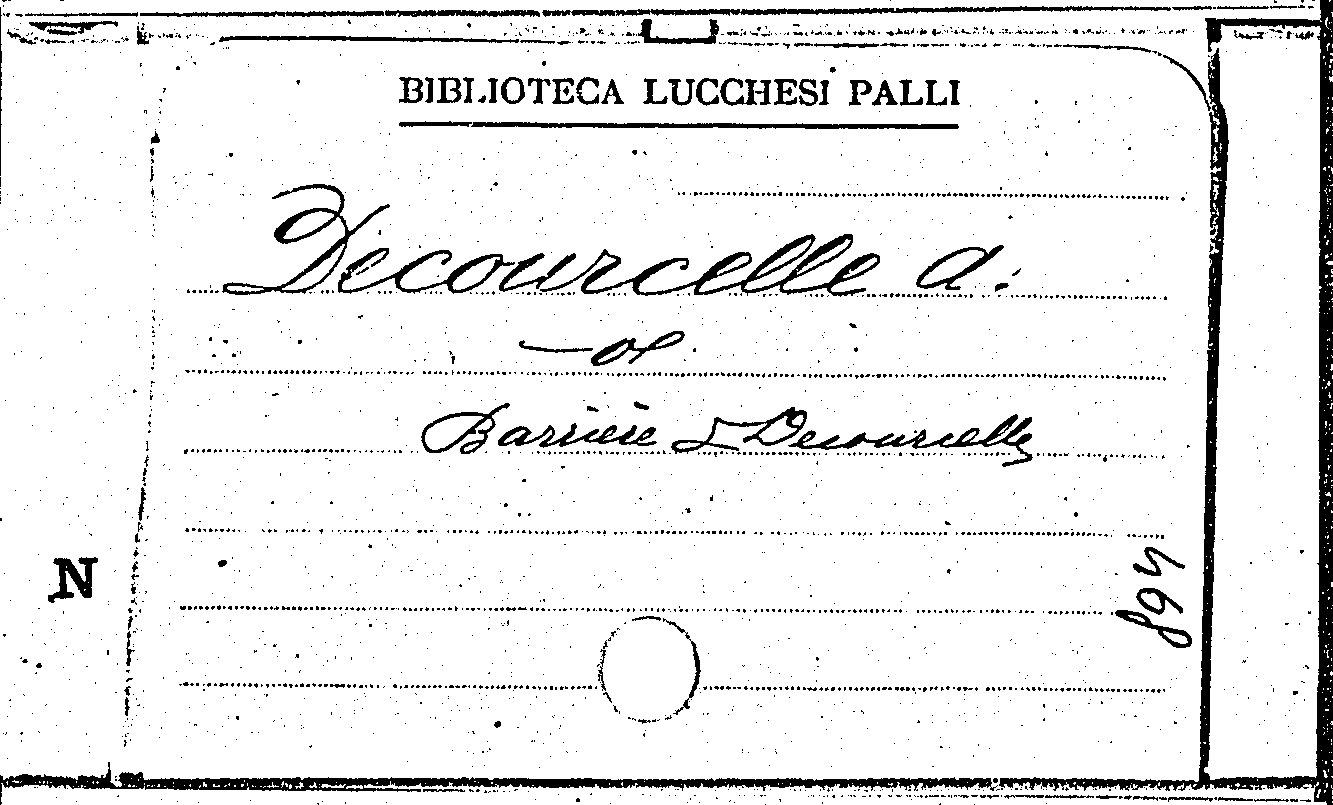 BIBLIOTECA LUCCHESI PALLI
Decourcelle A.
Barrière & Decourcelle
N